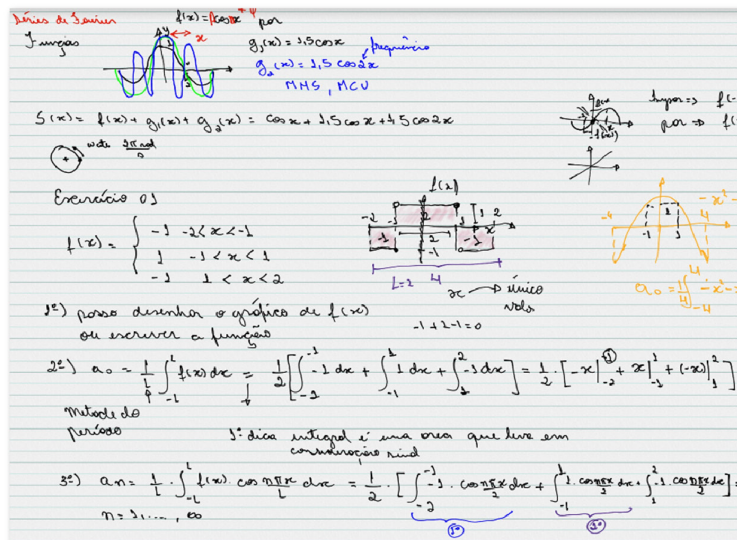 Séries de Fourier
f(x) = βcosαx + φ por
Funções
g₁(x) = 1,5 cos x
frequência
g₂(x) = 1,5 cos 2x
MHS, MCU
S(x) = f(x) + g₁(x) + g₂(x) = cos x + 1,5 cos x + 1,5 cos 2x
Impar =>
f(-
par => f(
Exercício 01
f(x)
f(x) = { -1 -2<x<-1
1 -1<x<1
-1 1<x<2
-2 -1 2 1 2 x
-1 2 -1
-1
L=2 4
x → único valor
-4 -1 1 1 4 -x²-
a₀ = 1/4 ∫₋₄⁴ -x²-
1º) posso desenhar o gráfico de f(x)
ou escrever a função
-1+2-1=0
2º-) a₀ = 1/L ∫₋L^L f(x) dx = 1/2 [∫₋₂⁻¹ -1 dx + ∫₋₁¹ 1 dx + ∫₁² -1 dx] = 1/2 · [-x|₋₂⁻¹ + x|₋₁¹ + (-x)|₁²]
Metade do
período
1ª dica integral é uma area que leva em
consideração sinal
3º-) an = 1/L · ∫₋L^L f(x) · cos nπx/L dx = 1/2 · [∫₋₂⁻¹ -1 · cos nπx/2 dx + ∫₋₁¹ 1 · cos nπx/2 dx + ∫₁² -1 · cos nπx/2 dx] =
n = 1, ..., ∞